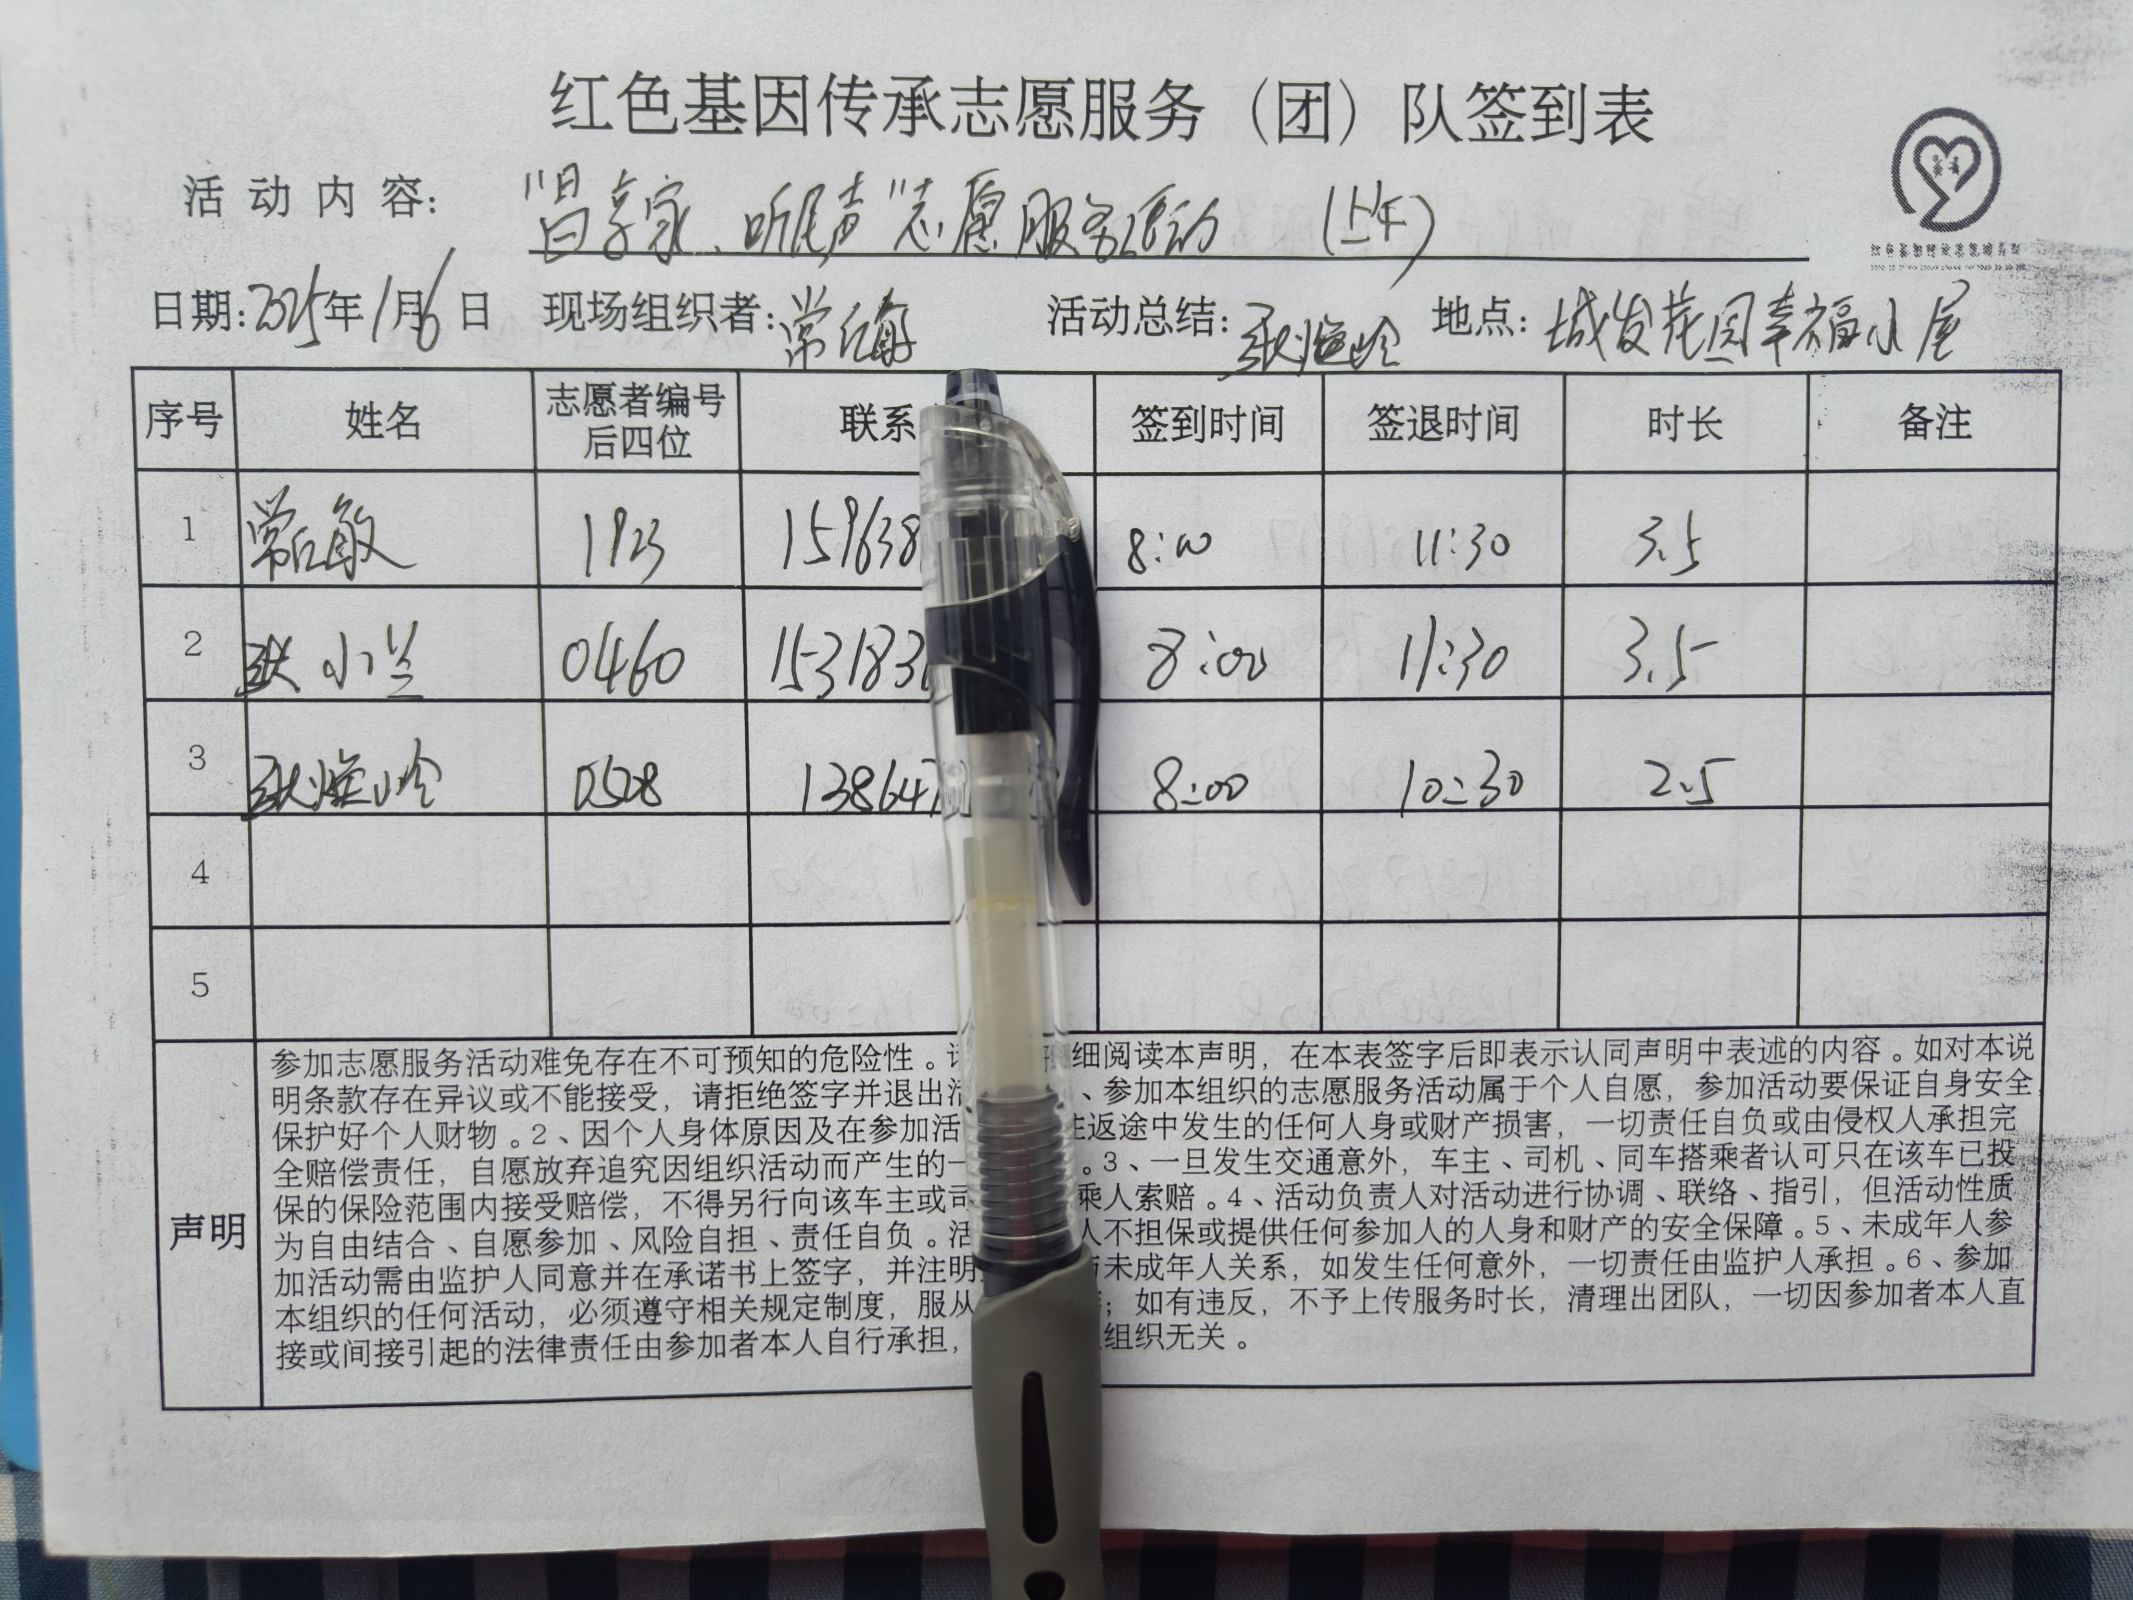 红色基因传承志愿服务（团）队签到表
活动内容：“昌享家、听民声”志愿服务活动 （上午）
日期：2025年1月6日 现场组织者：常 活动总结： 地点：城发花园幸福小屋
序号 姓名 志愿者编号后四位 联系 签到时间 签退时间 时长 备注
1 常 敏 1923 159638 8:00 11:30 3.5
2 张小兰 0460 153183 8:00 11:30 3.5
3 0508 138647 8:00 10:30 2.5
4
5
声明
参加志愿服务活动难免存在不可预知的危险性。 细阅读本声明，在本表签字后即表示认同声明中表述的内容。如对本说
明条款存在异议或不能接受，请拒绝签字并退出活 、参加本组织的志愿服务活动属于个人自愿，参加活动要保证自身安全
保护好个人财物。2、因个人身体原因及在参加活 返途中发生的任何人身或财产损害，一切责任自负或由侵权人承担完
全赔偿责任，自愿放弃追究因组织活动而产生的一 。3、一旦发生交通意外，车主、司机、同车搭乘者认可只在该车已投
保的保险范围内接受赔偿，不得另行向该车主或司 乘人索赔。4、活动负责人对活动进行协调、联络、指引，但活动性质
为自由结合、自愿参加、风险自担、责任自负。活 人不担保或提供任何参加人的人身和财产的安全保障。5、未成年人参
加活动需由监护人同意并在承诺书上签字，并注明 未成年人关系，如发生任何意外，一切责任由监护人承担。6、参加
本组织的任何活动，必须遵守相关规定制度，服从 ；如有违反，不予上传服务时长，清理出团队，一切因参加者本人直
接或间接引起的法律责任由参加者本人自行承担， 组织无关。